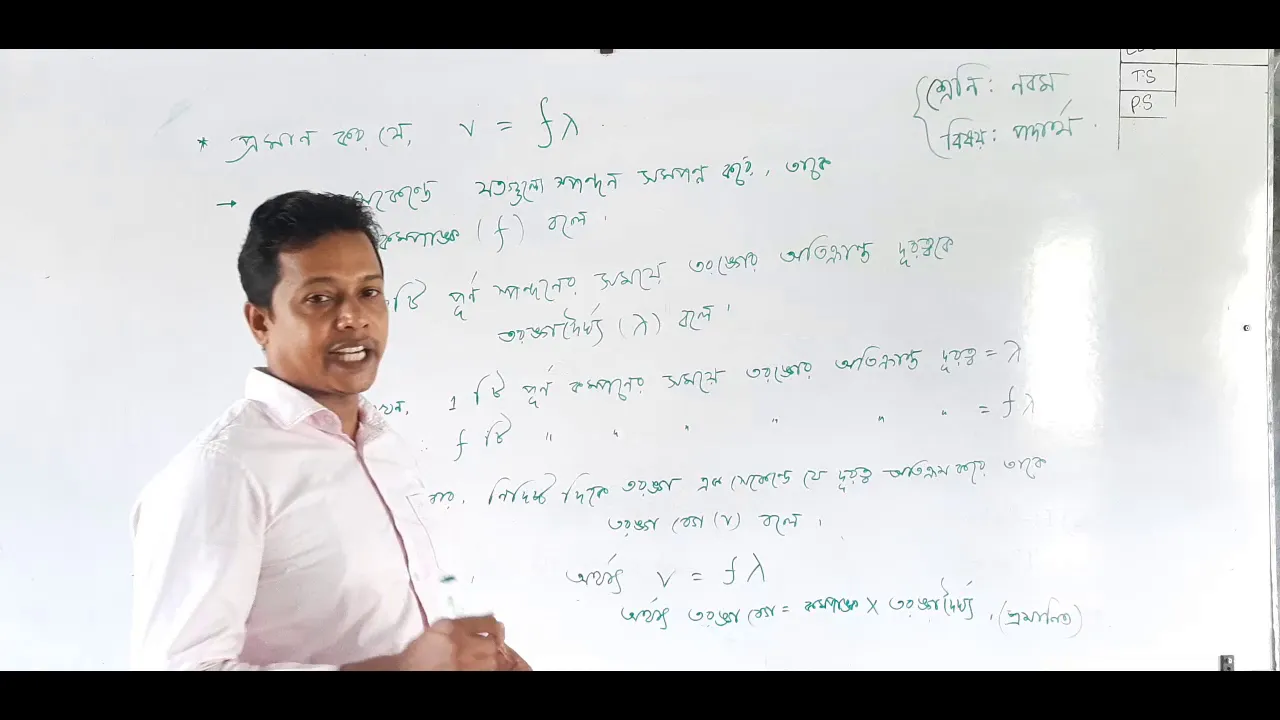 শ্রেনি: নবম
বিষয়: পদার্থ
TS
PS
* প্রমান কর যে, v = fλ
→ সেকেন্ডে যতগুলো স্পন্দন সম্পন্ন করে, তাকে
কম্পাঙ্ক (f) বলে।
টি পূর্ন স্পন্দনের সময়ে তরঙ্গের অতিক্রান্ত দূরত্বকে
তরঙ্গদৈর্ঘ্য (λ) বলে।
1 টি পূর্ন কম্পনের সময়ে তরঙ্গের অতিক্রান্ত দূরত্ব = λ
∴ f টি " " " " " " = fλ
নির্দিষ্ট দিকে তরঙ্গ এক সেকেন্ডে যে দূরত্ব অতিক্রম করে তাকে
তরঙ্গ বেগ (v) বলে।
অর্থাৎ v = fλ
অর্থাৎ তরঙ্গ বেগ = কম্পাঙ্ক X তরঙ্গদৈর্ঘ্য, (প্রমানিত)